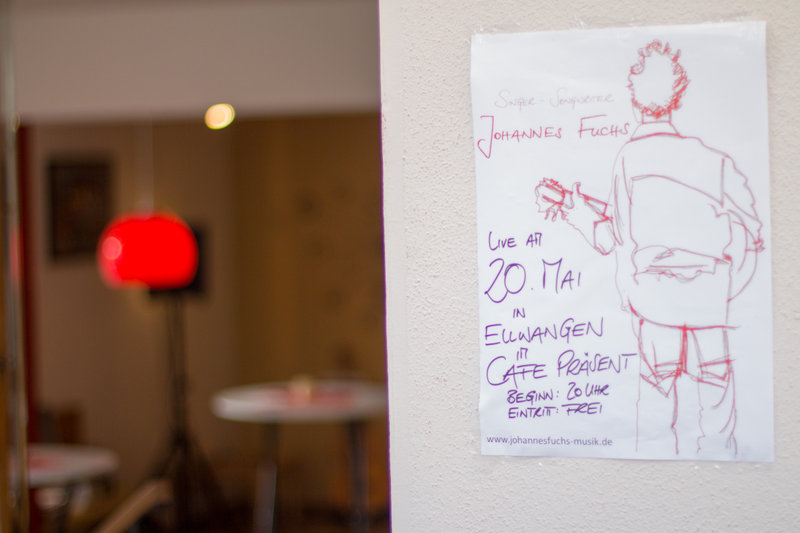 SINGER - SONGWRITER
JOHANNES FUCHS
LIVE AM
20. MAI
IN
ELLWANGEN
IM
CAFE PRÄSENT
BEGINN: 20 UHR
EINTRITT: FREI
www.johannesfuchs-musik.de